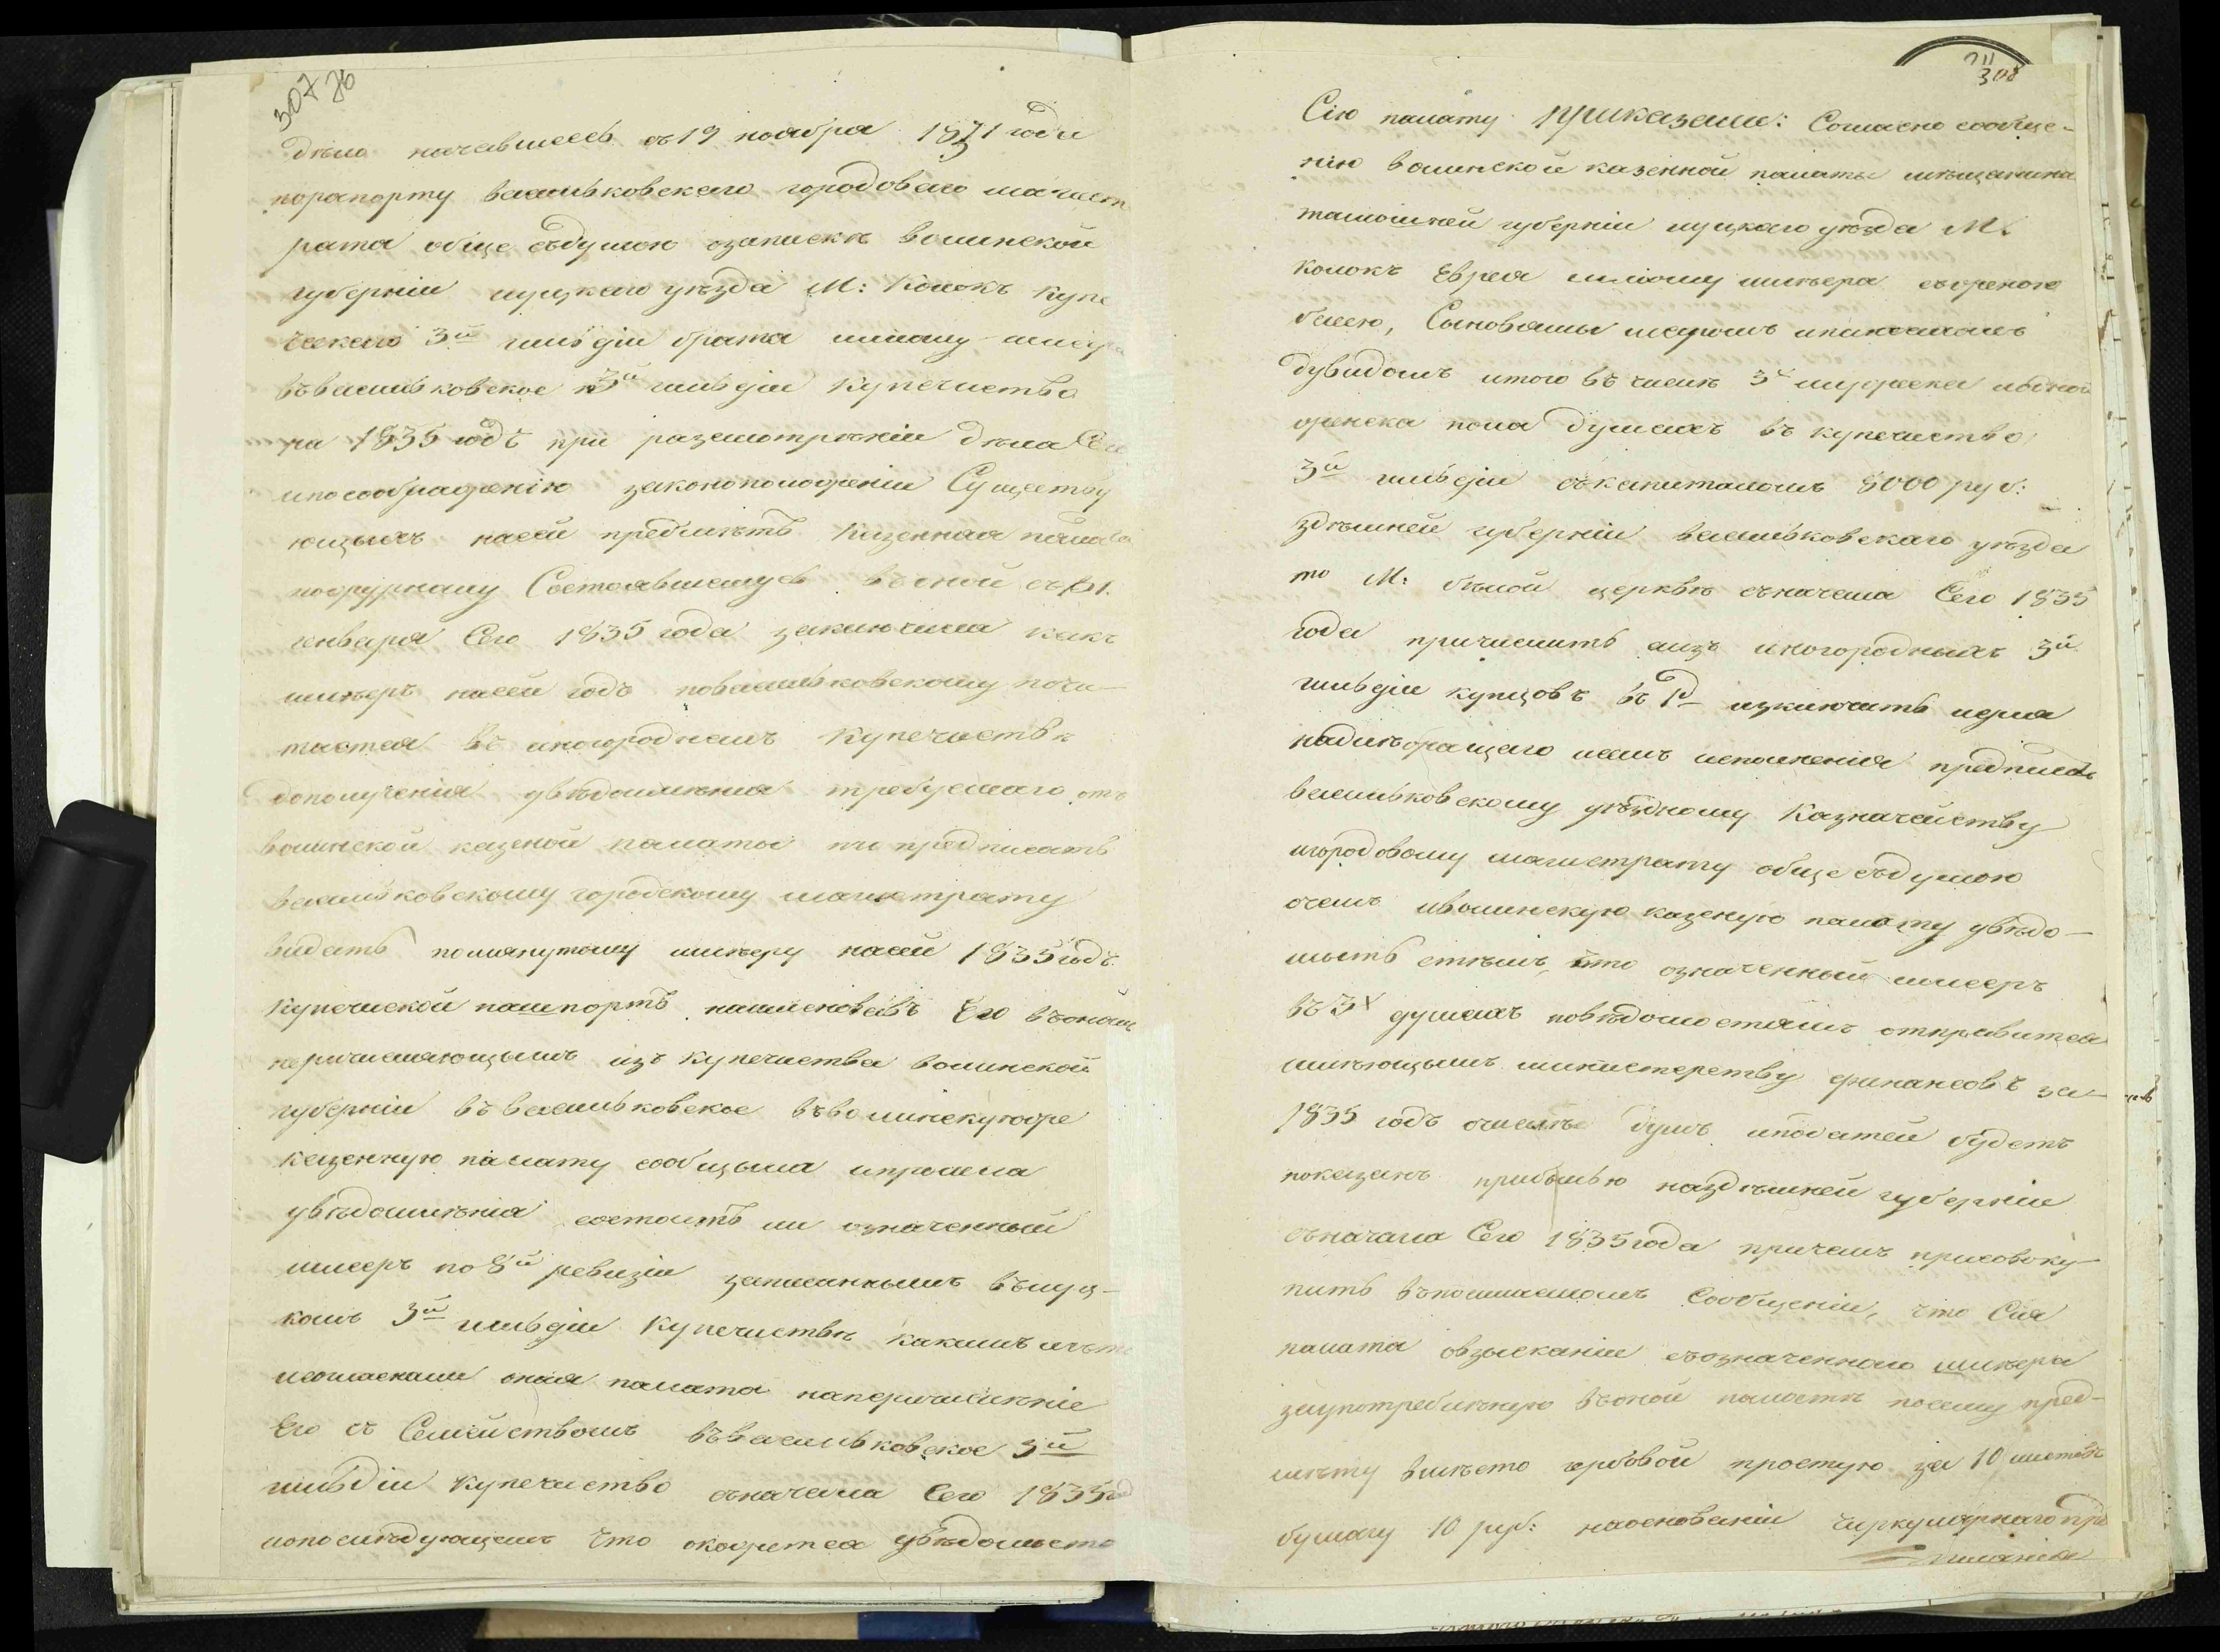 307 26
дѣло начавшееся съ 19 ноября 1831 года
порапорту васильковскаго городоваго магист
рата обще съдумою озапискѣ волинской
губерніи луцкаго уѣзда М: Колокъ купе
ческаго 3й гильдіи брата шліому шмера
въвасильковское 3й гильдіи купечество
на 1835 годъ при разсмотрѣніи дѣла Сего
ипосоображенію законоположеніи Существу
ющыхъ насей предмѣтъ Казенная палата
пожурналу Состоявшемуся въоной съ 31.
генваря Сего 1835 года заключила какъ
шмѣеръ насей годъ повасильковскому почи-
тается въ иногороднемъ купечествѣ
дополученія увѣдомлѣнія требуемаго отъ
волинской казеной палаты то предписать
васильковскому городскому магистрату
видать помянутому шмѣеру насей 1835 годъ
купеческой пашпортъ наименовавъ Его въономъ
перичисляющымъ изъ купечества волинской
губерніи въвасильковское въволинскуюже
казенную палату сообщыла ипросила
увѣдомлѣнія состоитъ ли означенный
шмееръ по 8й ревизіи записаннымъ вълуц-
комъ 3й гильдіи купечествѣ какимъ
исогласнали оная палата наперичислѣніе
Его съ Семействомъ въвасильковское 3й
гильдіи купечество съначала Сего 1835 год
ипослѣдующемъ что окажется увѣдомыть
308
Сію палату приказали: Согласно сообще-
нію волинской казенной палаты мѣщанина
тамошней губерніи луцкаго уѣзда М.
колокъ Еврея шліому шмѣера съженою
беею, Сыновямы
дувидомъ итого въ числѣ 3х мужеска иодной
женска пола душахъ въ купечество
3й гильдіи съкапиталомъ 8000 руб:
здѣшней губерніи васильковскаго уѣзда
то М: бѣлой церквѣ съначала Сего 1835
года причислить аизъ иногородныхъ 3й
гильдіи купцовъ изключить идля
надлѣжащаго исполненія предписать
васильковскому уѣздному Казначейству
игородовому магистрату обще съдумою
очемъ иволинскую казеную палату увѣдо-
мыть стѣмъ, что означенный шмееръ
въ 3х душахъ повѣдомостямъ отправится
имѣющымъ министерству финансовъ за
1835 годъ очислѣ душъ иподатей будетъ
показанъ прибылью наздѣшней губерніи
съначала Сего 1835 года причемъ присовоку-
пить въпоминаемомъ Сообщеніи, что Сія
палата овзысканіи съозначеннаго шмѣера
заупотребленную въоной палатѣ посему пред-
мѣту вмѣсто гербовой простую за 10 листовъ
бумагу 10 руб: наоснованіи циркулярнаго пред
писанія